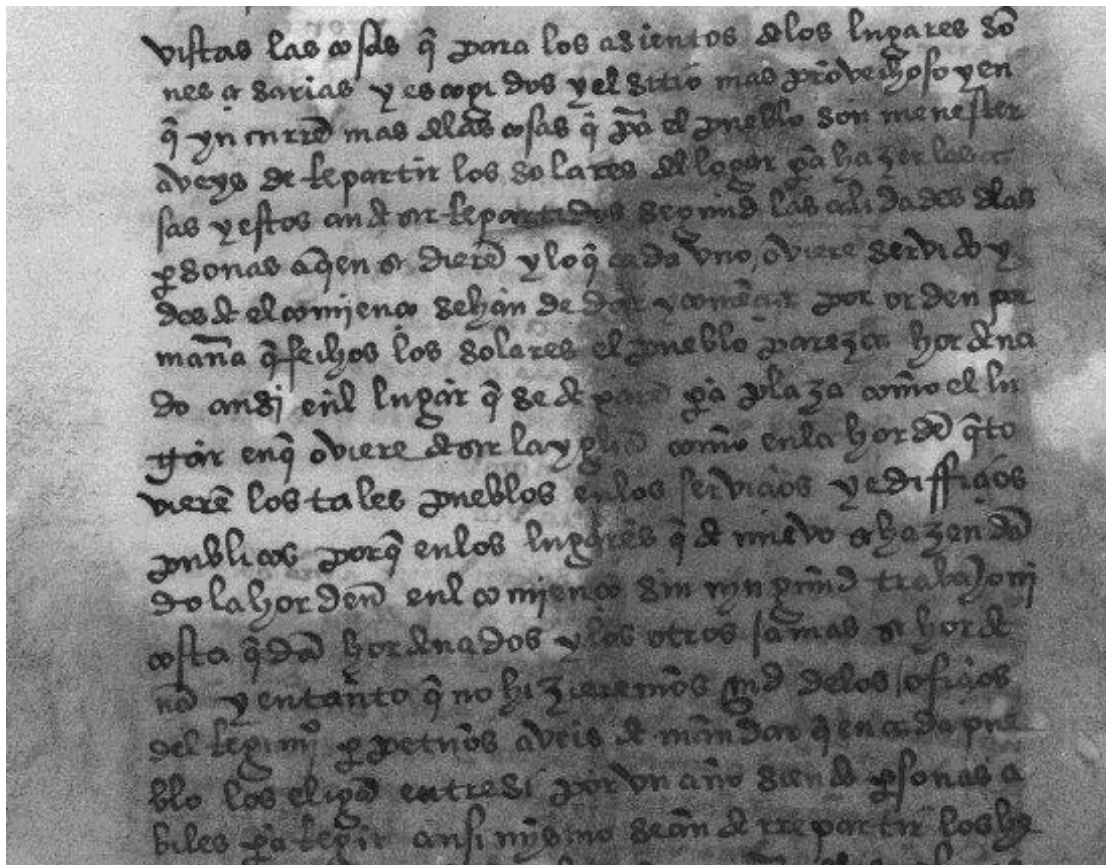 vistas las cosas q̄ para los asientos delos lugares sō
nesçesarias y escogidos y el sitio mas provechoso y en
q̄ yncurrē mas delas cosas q̄ pā el pueblo son menester
aveys de Repartir los solares del logar pa hazer las ca
sas y estos an de ser Repartidos segund las calidades delas
psonas aqen se dierē y lo q̄ cada vno oviere servido y
dosde el comienço se han de dar y comēçar por orden por
manā q̄ fechos los solares el pueblo paresca hordena
do ansi enl lugar q̄ se de para plaza como el lu
gar enq̄ oviere de ser la yglia como enla hordē q̄ to
vierē los tales pueblos enlos serviçios y ediffiçios
publicos porq̄ enlos lugares q̄ de nuevo se hazen dā
do la horden enl comienço sin nyngund trabajo ni
costa q̄dā hordenados y los otros jamas se horde
nā y entanto q̄ no hizieremos mrd delos ofiçios
del Regimyº ppetuos aveis de mandar q̄ en cada pue
blo los eligā entresi por vn año siendo psonas a
biles pa Regir ansi mysmo sean de rrepartir los he